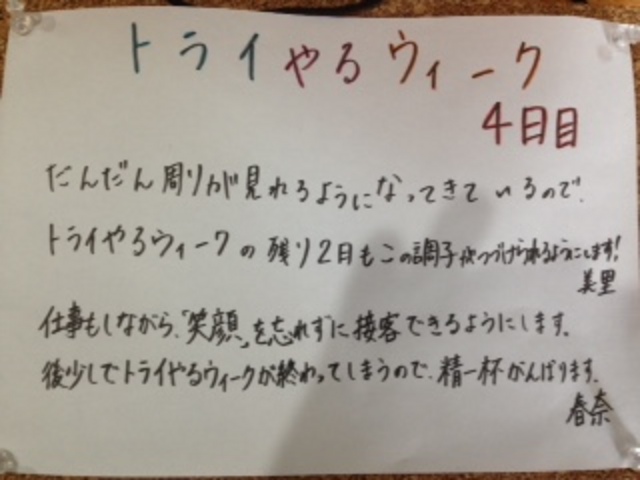 トライやるウィーク
4日目
だんだん周りが見れるようになってきているので、
トライやるウィークの残り2日もこの調子がつづけられるようにします!
美里
仕事もしながら、「笑顔」を忘れずに接客できるようにします。
後少しでトライやるウィークが終わってしまうので、精一杯がんばります。
春奈